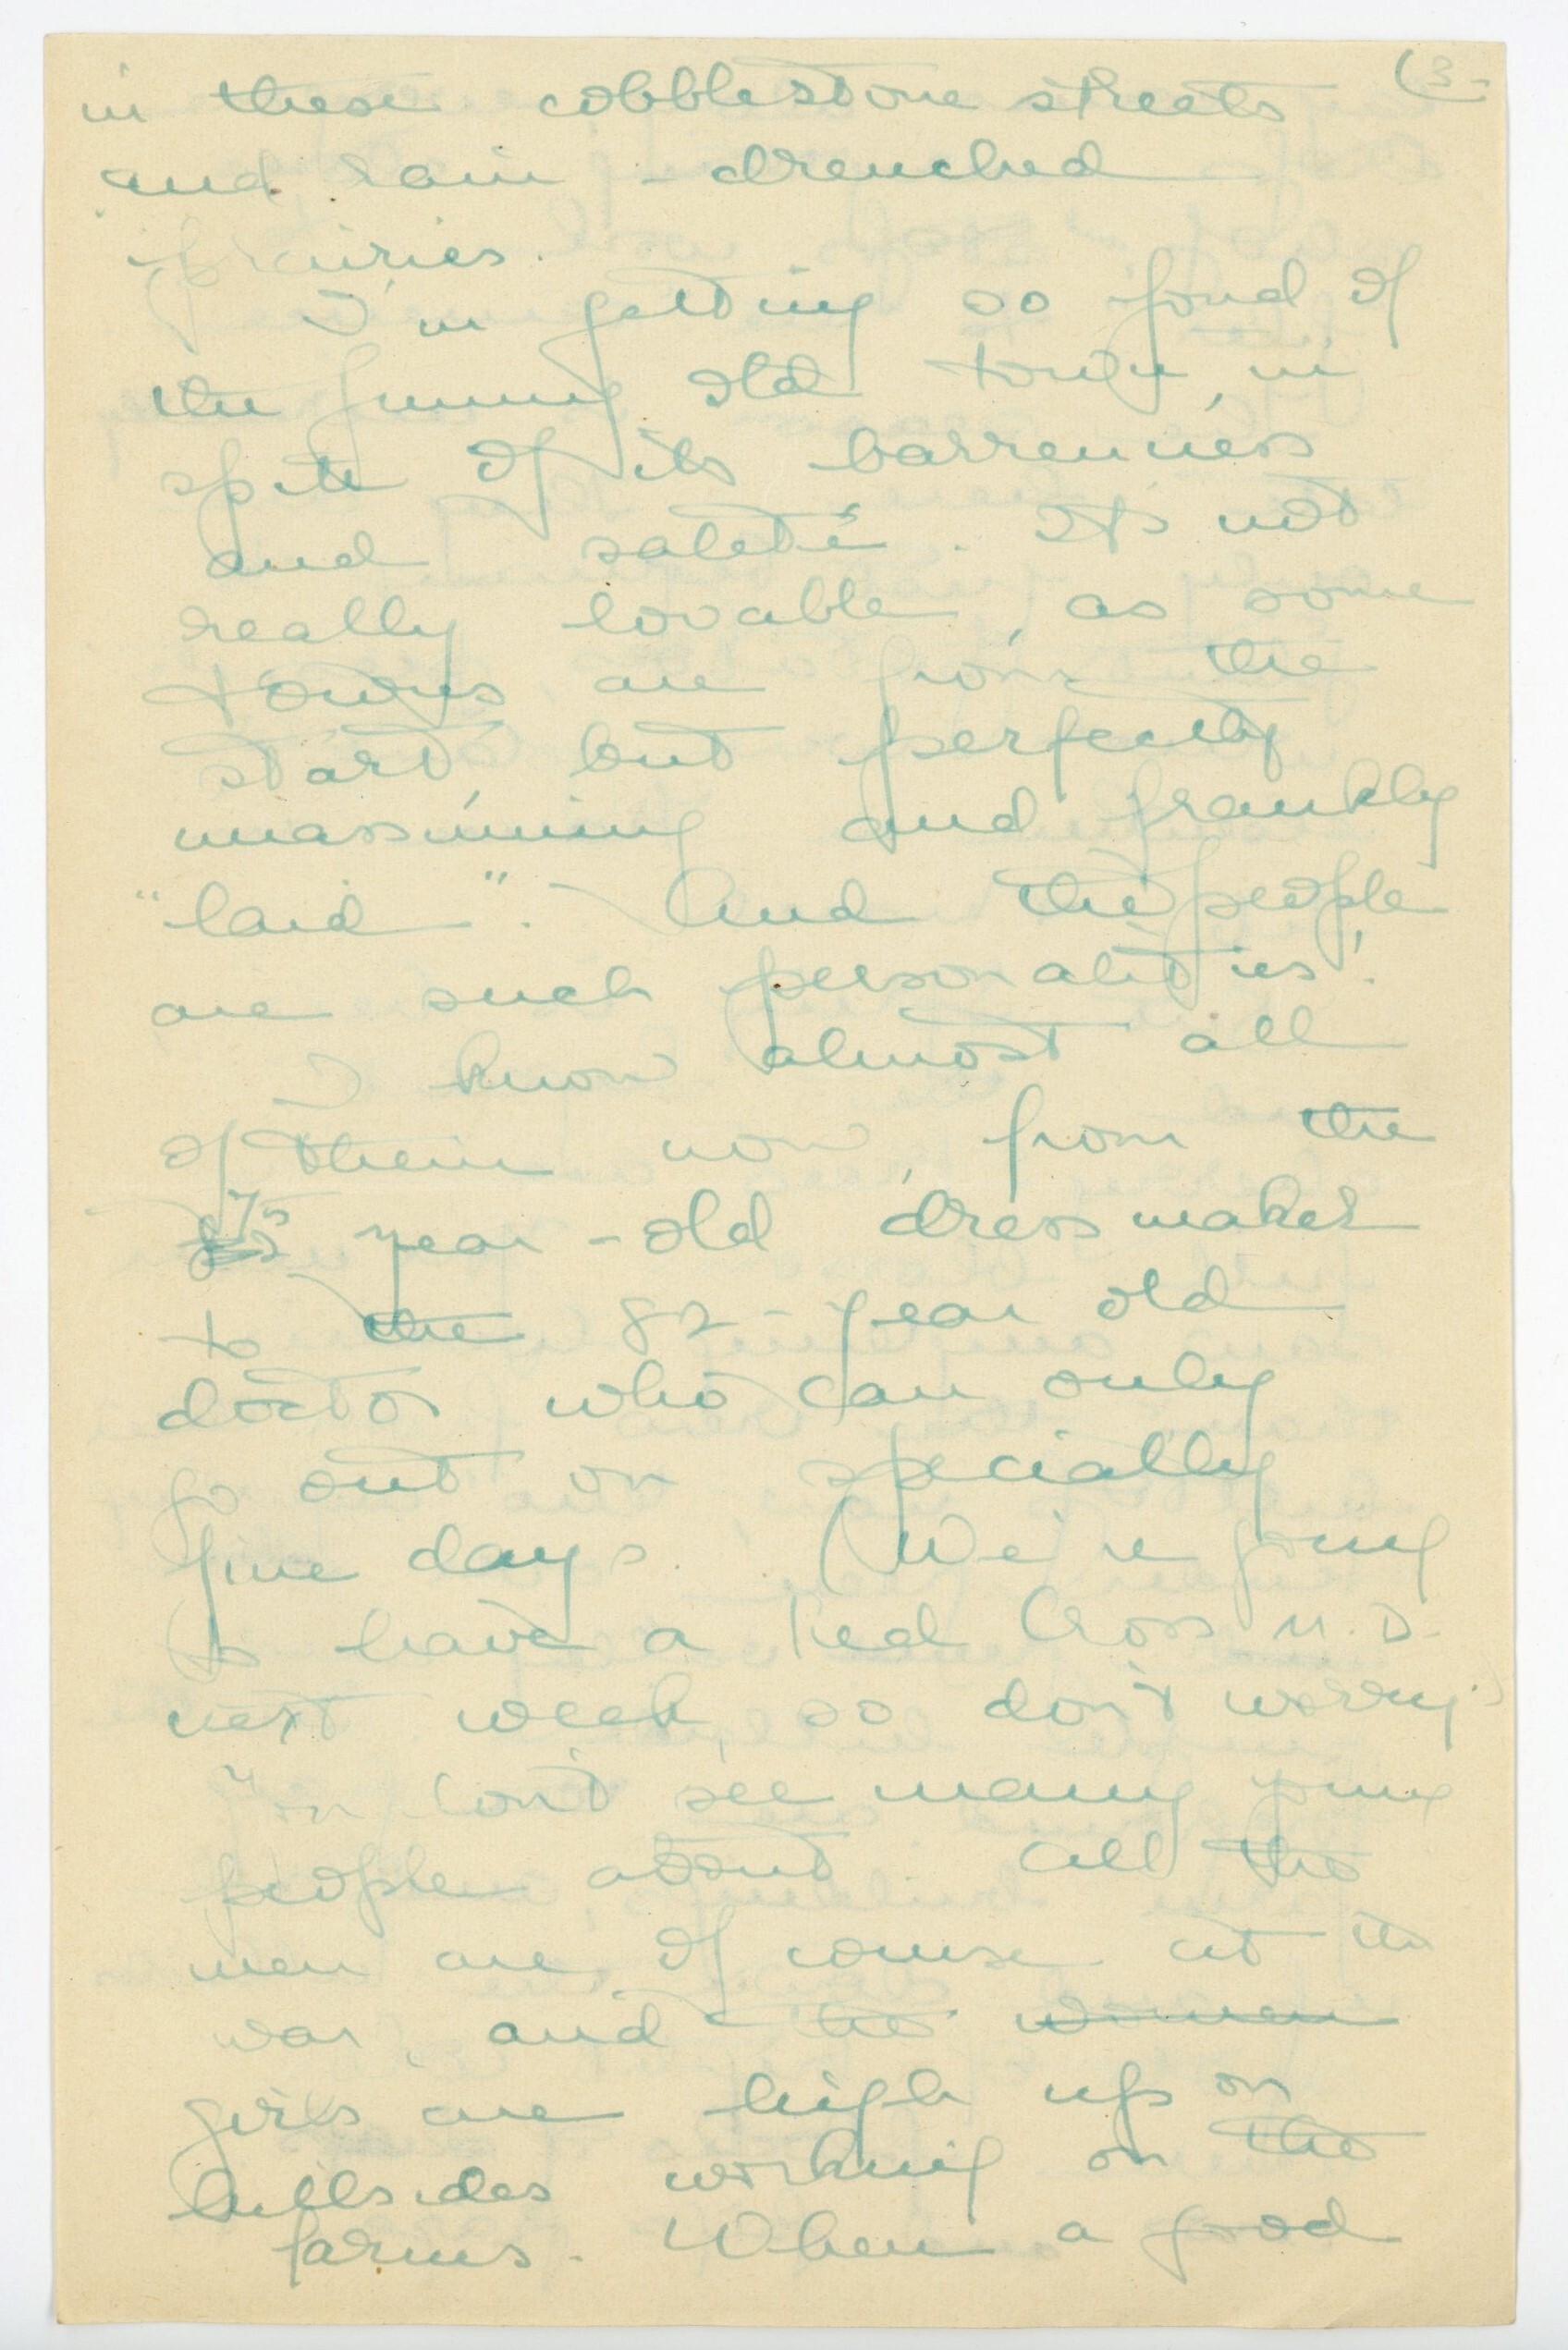 (3-
in these cobblestone streets
and rain-drenched
prairies.
I'm getting so fond of
the funny old town, in
spite of its barrenness
and saleté. It's not
really lovable, as some
towns are from the
start, but perfectly
unassuming and frankly
"laid". And the people
are such personalities!
I know almost all
of them now, from the
75 year-old dressmaker
to the 82-year old
doctor who can only
go out on specially
fine days. (We're going
to have a Red Cross M.D.
next week, so don't worry.)
You don't see many young
people about. All the
men are of course at the
war, and the women
girls are high up on
hillsides working on the
farms. When a good